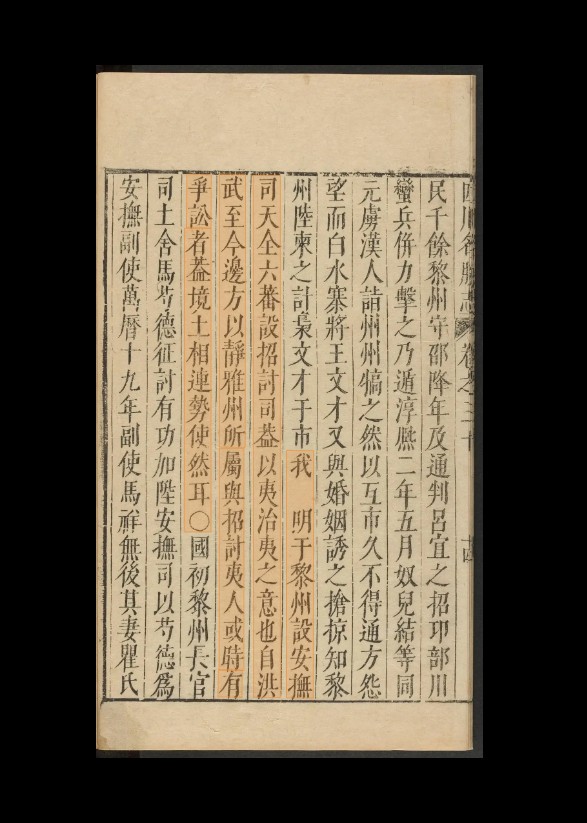 四川名勝志 卷之三十 十四
民千餘黎州守邵降年及通判呂宜之招邛部川
蠻兵併力擊之乃遁淳熈二年五月奴兒結等同
元虜漢人詣州州犒之然以互市久不得通方怨
望而白水寨將王文才又與婚姻誘之搶掠知黎
州陸柬之計梟文才于市我 明于黎州設安撫
司天全六番設招討司葢以夷治夷之意也自洪
武至今邊方以靜雅州所屬與招討夷人或時有
爭訟者葢境土相連勢使然耳○國初黎州長官
司土舍馬芍德征討有功加陞安撫司以芍德爲
安撫副使萬曆十九年副使馬祥無後其妻瞿氏